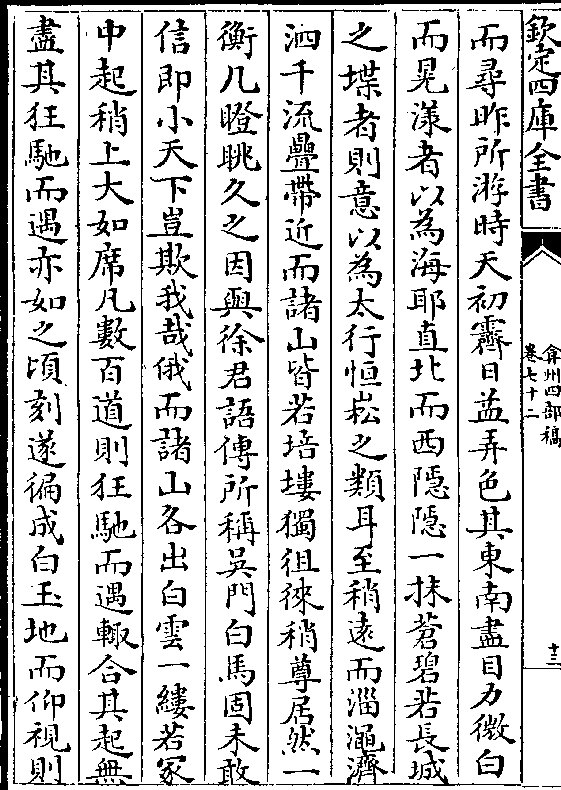 欽定四庫全書
弇州四部稿
卷七十二
十三
而尋昨所游時天初霽日益弄色其東南盡目力微白
而晃漾者以為海耶直北而西隱隱一抹蒼碧若長城
之堞者則意以為太行恒崧之類耳至稍遠而淄澠濟
泗千流疊帶近而諸山皆若培塿獨徂徠稍尊居然一
衡几瞪眺久之因與徐君語傳所稱吳門白馬固未敢
信即小天下豈欺我哉俄而諸山各出白雲一縷若冢
中起稍上大如席凡數百道則狂馳而遇輙合其起無
盡其狂馳而遇亦如之頃刻遂徧成白玉地而仰視則